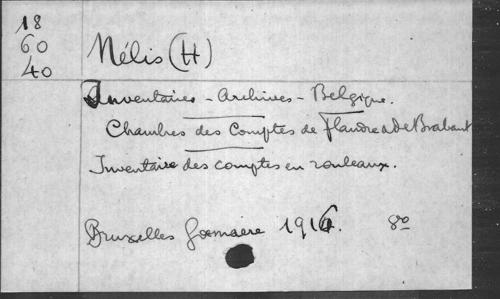 18
60
40
Nélis (H)
Inventaires - Archives - Belgique.
Chambres des Comptes de Flandre & de Brabant
Inventaire des comptes en rouleaux.
Bruxelles Goemaere 1914. 8º